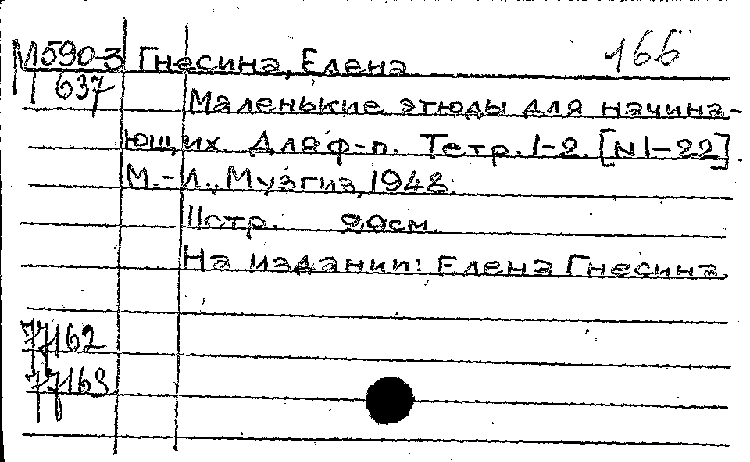 М590-3 Гнесина, Елена 166
637 Маленькие этюды для начина-
ющих. Для ф-п. Тетр. 1-2. [N 1-22].
М.-Л., Музгиз, 1948.
11 стр. 29 см.
На издании: Елена Гнесина.
77162
77163